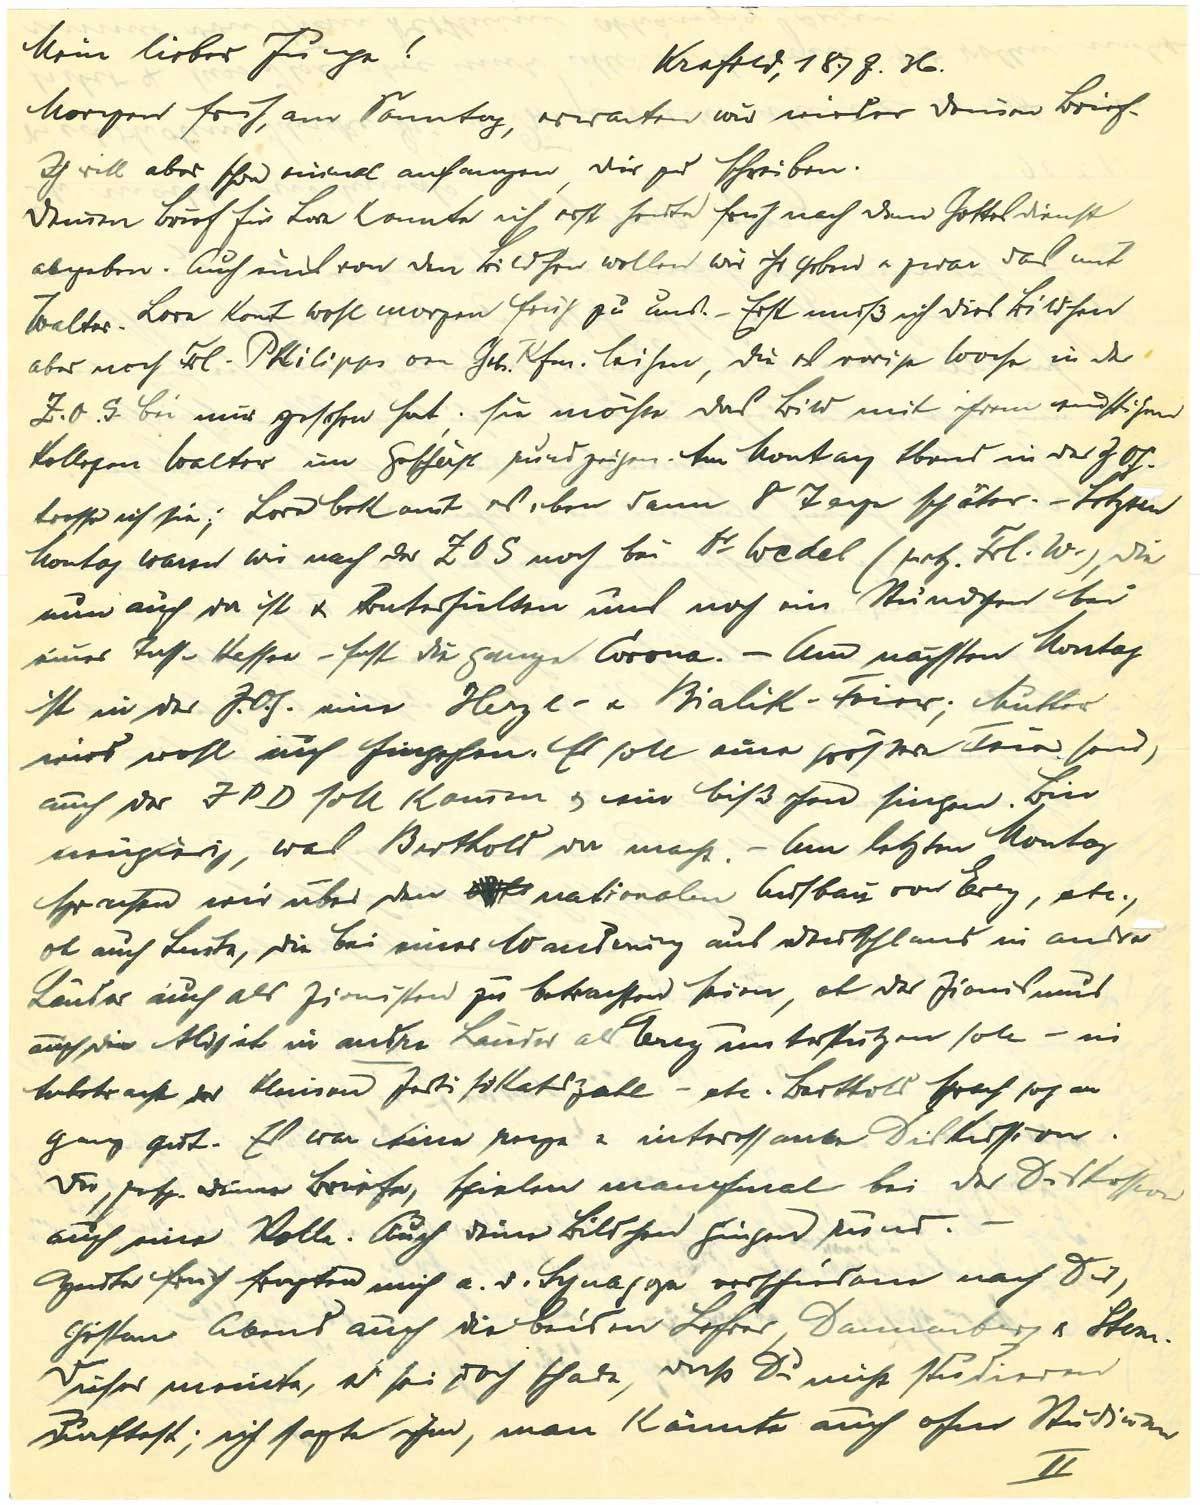 Mein lieber Junge!
Krefeld, 18. 7. 36.
Morgen früh, am Sonntag, erwarten wir wieder Deinen Brief.
Ich will aber schon einmal anfangen, dir zu schreiben.
Deinen Brief für Lore konnte ich erst heute früh nach dem Gottesdienst
abgeben. Auch eins von den Bildchen wollen wir ihr geben u. zwar das mit
Walter. Lore komt wohl morgen früh zu uns. – Erst muß ich dies Bildchen
aber noch Frl. Philipps von Gebr. Kfm. leihen, die es vorige Woche in der
Z.O.G. bei mir gesehen hat. Sie möchte das Bild mit ihrem
Kollegen Walter im Geschäft rundzeigen. Am Montag Abend in der Z.O.G.
treffe ich sie; Lore bekomt es eben dann 8 Tage später. – Letzten
Montag waren wir nach der ZOG noch bei Dr Wedel (, Frl. W.), die
nun auch da ist & unterhielten uns noch ein Stündchen bei
einer Tasse Kaffee – fast die ganze Corona. – Am nächsten Montag
ist in der Z.O.G. eine Herzl- u. Bialik-Feier; Mutter
wird wohl auch hingehen. Es soll eine größere Feier sein,
auch der JPD soll komen & ein bißchen singen. Bin
neugierig, was Berthold da macht. – Am letzten Montag
sprachen wir über den nationalen Aufbau von Erez, etc.,
ob auch Leute, die bei einer Wanderung aus Deutschland in andre
Länder auch als Zionisten zu betrachten seien, ob der Zionismus
auch die Alijah in andre Länder als Erez unterstützen solle – in
Anbetracht der kleinen Zertifikatszahl – etc. Berthold sprach sogar
ganz gut. Es war eine rege u. interessante Diskussion.
Du, resp. deine Briefe, spielen manchmal bei der Diskussion
auch eine Rolle. Auch deine Bildchen gingen rund. –
Heute früh fragten mich a. d. Synagoge verschiedene nach Dir,
gestern Abend auch die beiden Lehrer, Dannenberg & Stern.
Dieser meinte, es sei doch schade, daß Du nicht studieren
durftest; ich sagte ihm, man könnte auch ohne Studium
II